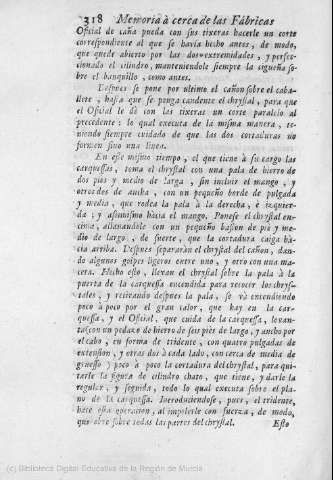 318 Memoria à cerca de las Fábricas
Oficial de caña pueda con sus tixeras hacerle un corte
correspondiente al que se havia hecho antes, de modo,
que quede abierto por las dos extremidades, y perfec-
cionado el cilindro, manteniendole siempre la sigueña so-
bre el banquillo, como antes.
Despues se pone por ultimo el cañon sobre el caba-
llete, hasta que se ponga candente el chrystal, para que
el Oficial le dè con las tixeras un corte paralelo al
precedente: lo qual executa de la misma manera, te-
niendo siempre cuidado de que las dos cortaduras no
formen sino una linea.
En este mismo tiempo, el que tiene à su cargo las
carquessas, toma el chrystal con una pala de hierro de
dos piès y medio de larga, sin incluir el mango, y
otros dos de ancha, con un pequeño borde de pulgada
y media, que rodea la pala à la derecha, è izquier-
da; y assimismo hàcia el mango. Ponese el chrystal en-
cima, allanandole con un pequeño baston de piè y me-
dio de largo, de suerte, que la cortadura caiga hà-
cia arriba. Despues separaràn el chrystal del cañon, dan-
do algunos golpes ligeros entre uno, y otro con una ma-
cera. Hecho esto, llevan el chrystal sobre la pala à la
puerta de la carquessa encendida para recocer los chrys-
tales, y retirando despues la pala, se và entendiendo
poco à poco por el gran calor, que hay en la car-
quessa, y el Oficial, que cuida de la carquessa, levan-
ta con un pedazo de hierro de seis piès de largo, y ancho por
el cabo, en forma de tridente, con quatro pulgadas de
extension, y otras dos à cada lado, con cerca de media de
gruesso, y poco à poco la cortadura del chrystal, para qui-
tarle la figura de cilindro chato, que tiene, y darle la
regular, y seguida, todo lo qual executa sobre el pla-
no de la carquessa. Introduciendose, pues, el tridente,
hace esta operacion, al impelerle con fuerza, de modo,
que obre sobre todas las partes del chrystal.
Esto
(c) Biblioteca Digital Educativa de la Región de Murcia